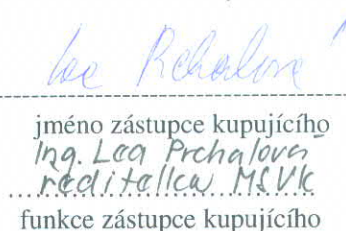 Lea Prchalová
jméno zástupce kupujícího
Ing. Lea Prchalová
ředitelka MSVK
funkce zástupce kupujícího